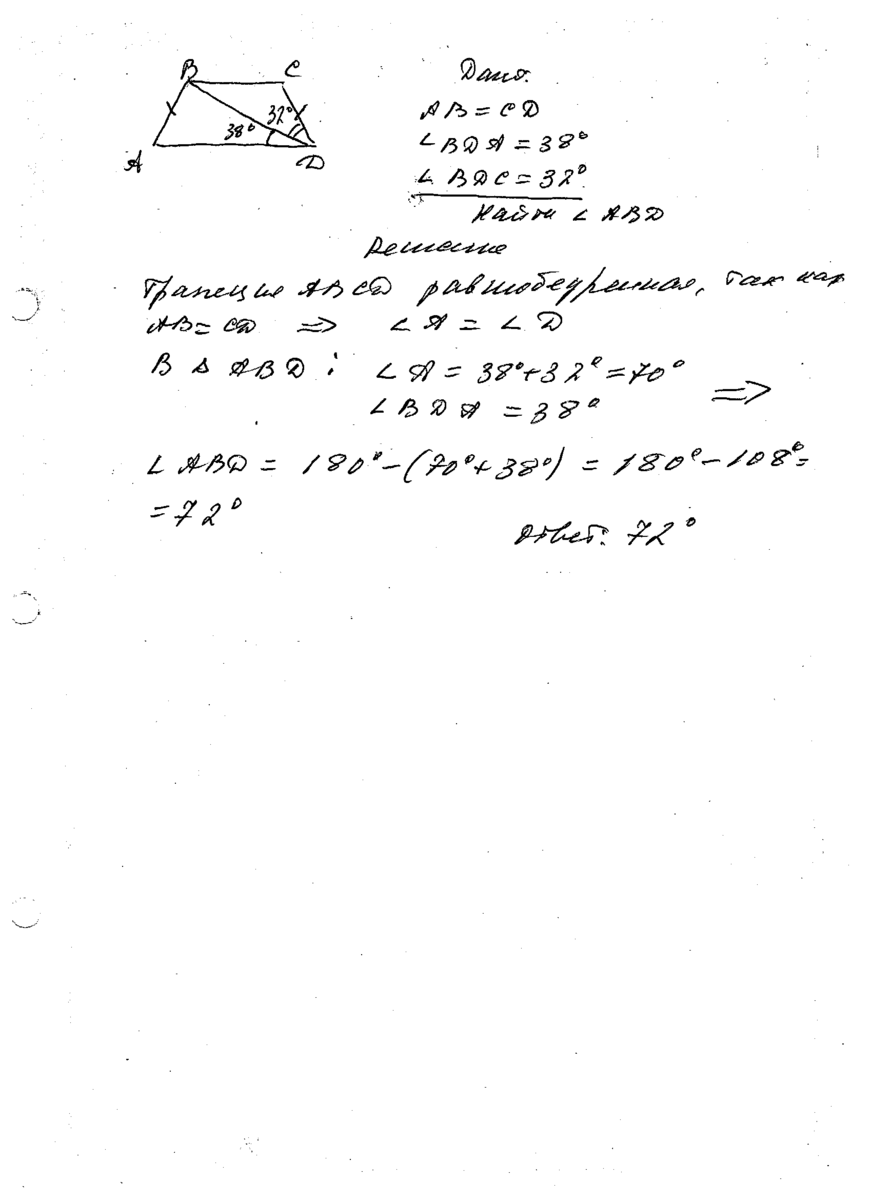 B C
32°
38°
A D
Дано:
AB = CD
∠ BDA = 38°
∠ BDC = 32°
Найти ∠ ABD
Решение
Трапеция ABCD равнобедренная, так как
AB = CD => ∠ A = ∠ D
В Δ ABD : ∠ A = 38° + 32° = 70°
∠ BDA = 38° =>
∠ ABD = 180° - (70° + 38°) = 180° - 108° =
= 72°
Ответ: 72°